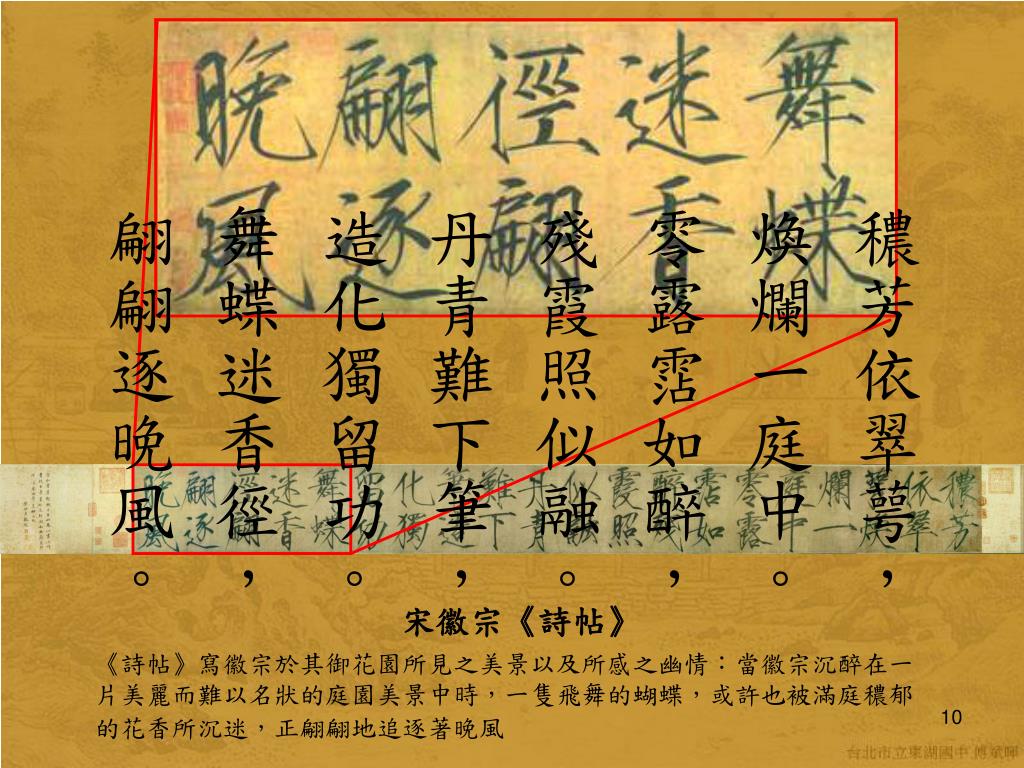 舞蝶
迷香
徑翩
翩逐
晚風
穠芳依翠萼，
煥爛一庭中。
零露霑如醉，
殘霞照似融。
丹青難下筆，
造化獨留功。
舞蝶迷香徑，
翩翩逐晚風。
宋徽宗《詩帖》
《詩帖》寫徽宗於其御花園所見之美景以及所感之幽情：當徽宗沉醉在一
片美麗而難以名狀的庭園美景中時，一隻飛舞的蝴蝶，或許也被滿庭穠郁
的花香所沉迷，正翩翩地追逐著晚風
10
台北市立東湖國中